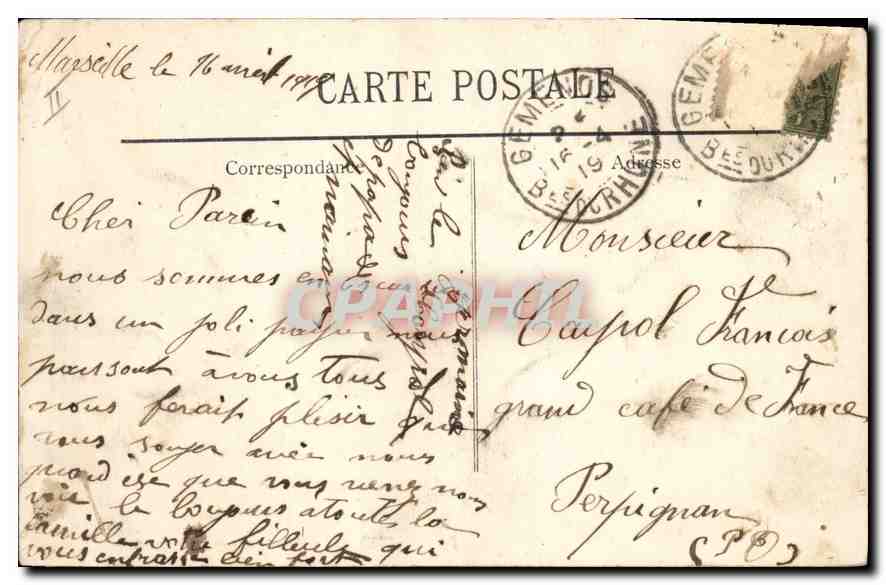 Marseille le 16 avril 1919
II
CARTE POSTALE
GEMENOS
16 -4
19
BES DU RHONE
GEME
BES DU RH
Correspondance
Adresse
Cher Parin
nous sommes en
dans un joli nous
passont à vous tous
nous ferait plisir que
vous soyer avec nous
quand ese que vous venez nous
voir le toujours a toutes la
famille votre filleule qui
vous enfrasse bien fort
le
toujours
papa
maman
CPAPHIL
Monsieur
Caypol Francois
grand café de France
Perpignan
(P O)